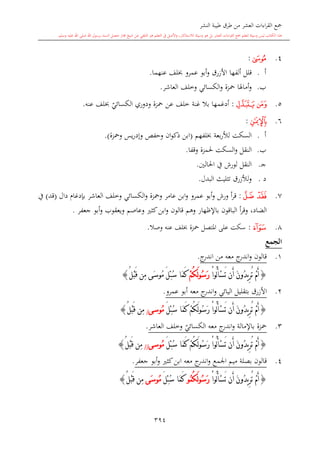 جمع القراءات العشر من طرق طيبة النشر
٤. مُوسَىٰ :
أ . قلل ألفها الأزرق وأبو عمرو بخلف عنهما.
ب. وأمالها حمزة والكسائي وخلف العاشر.
٥. وَمَن يَتَبَدَّلِ : أدغمها بلا غنة خلف عن حمزة ودوري الكسائيّ بخلف عنه.
٦. بِالْإِيمَٰنِ :
أ . السكت للأربعة بخلفهم (ابن ذكوان وحفص وإدريس وحمزة).
ب. النقل والسكت لحمزة وقفا.
جـ. النقل لورش في الحالين.
د . وللأزرق تثليث البدل.
٧. فَقَدْ ضَلَّ : قرأ ورش وأبو عمرو وابن عامر وحمزة والكسائي وخلف العاشر بإدغام دال (قد) في
الضاد، وقرأ الباقون بالإظهار وهم قالون وابن كثير وعاصم ويعقوب وأبو جعفر .
٨. سَوَآءَ : سكت على المتصل حمزة بخلف عنه وصلا.
الجمع
١. قالون واندرج معه من اندرج.
﴿ أَمْ تُرِيدُونَ أَن تَسْـَٔلُوا۟ رَسُولَكُمْ كَمَا سُئِلَ مُوسَىٰ مِن قَبْلُ ﴾
٢. الأزرق بتقليل اليائي واندرج معه أبو عمرو.
﴿ أَمْ تُرِيدُونَ أَن تَسْـَٔلُوا۟ رَسُولَكُمْ كَمَا سُئِلَ مُوسَىٰ مِن قَبْلُ ﴾
٣. حمزة بالإمالة واندرج معه الكسائيّ وخلف العاشر.
﴿ أَمْ تُرِيدُونَ أَن تَسْـَٔلُوا۟ رَسُولَكُمْ كَمَا سُئِلَ مُوسَىٰ مِن قَبْلُ ﴾
٤. قالون بصلة ميم الجمع واندرج معه ابن كثير وأبو جعفر.
﴿ أَمْ تُرِيدُونَ أَن تَسْـَٔلُوا۟ رَسُولَكُمُو كَمَا سُئِلَ مُوسَىٰ مِن قَبْلُ ﴾
٣٩٤